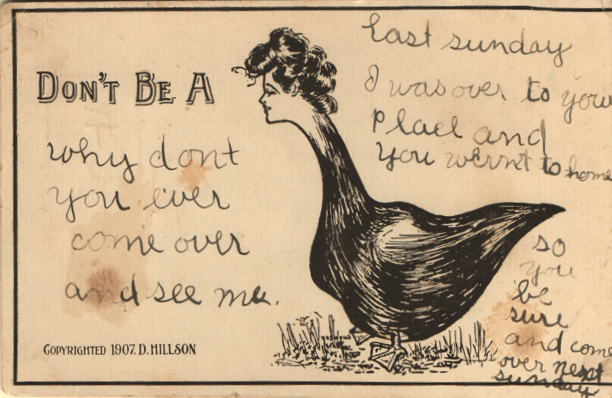 DON'T BE A
why dont
you ever
come over
and see me.
COPYRIGHTED 1907. D. HILLSON
Last sunday
I was over to your
Place and
you wernt to home
so
you
be
sure
and come
over next
sunday